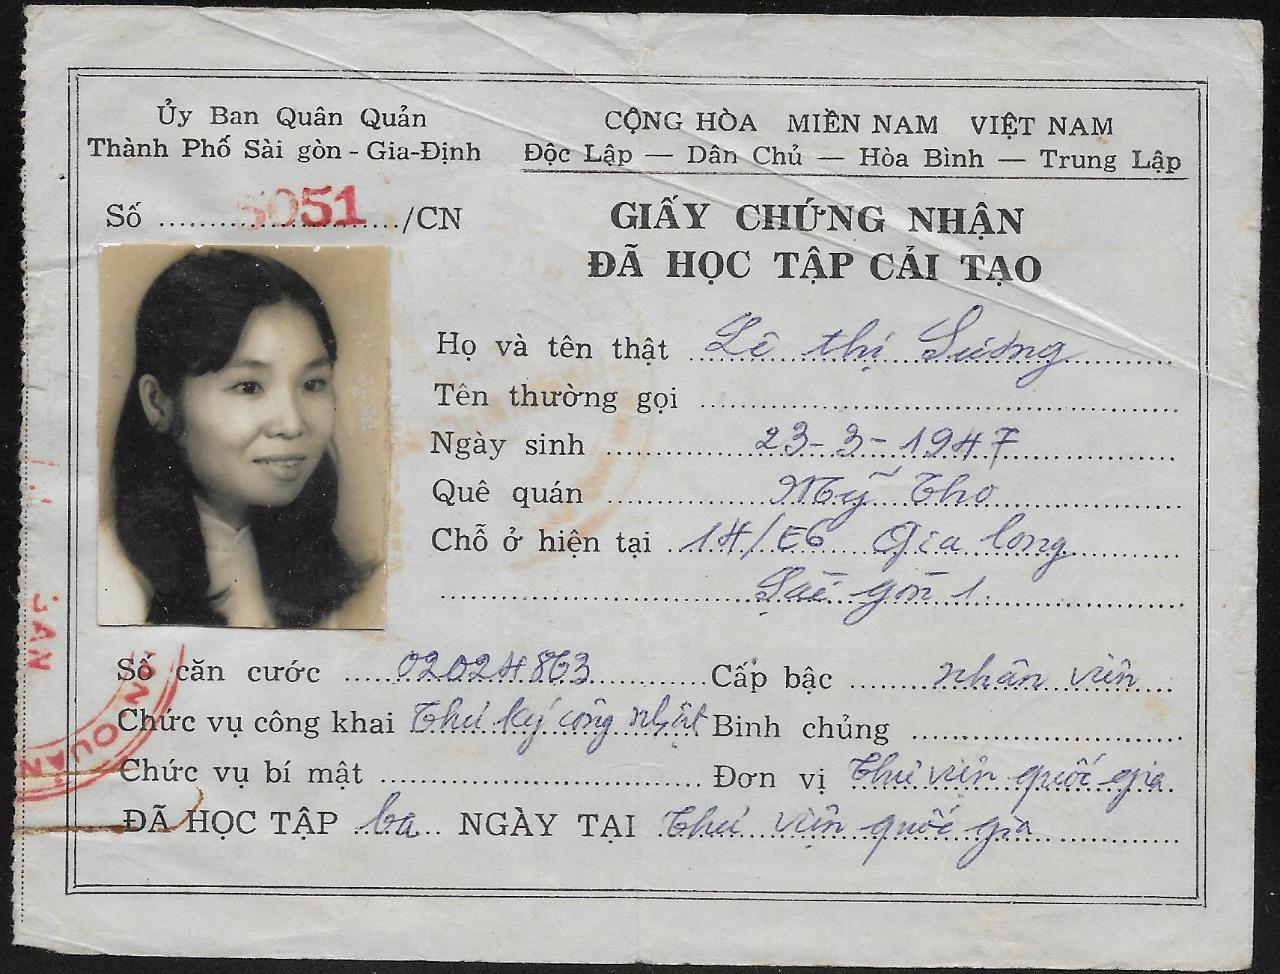 Ủy Ban Quân Quản
Thành Phố Sài gòn - Gia-Định
CỘNG HÒA MIỀN NAM VIỆT NAM
Độc Lập — Dân Chủ — Hòa Bình — Trung Lập
Số 5051/CN
GIẤY CHỨNG NHẬN
ĐÃ HỌC TẬP CẢI TẠO
Họ và tên thật Lê thị Sương
Tên thường gọi
Ngày sinh 23-3-1947
Quê quán Mỹ Tho
Chỗ ở hiện tại 14/E6 Gia long
Sài gòn 1.
Số căn cước 02024863 Cấp bậc nhân viên
Chức vụ công khai Thư ký công nhật Binh chủng
Chức vụ bí mật Đơn vị Thư viện quốc gia
ĐÃ HỌC TẬP ba NGÀY TẠI Thư viện quốc gia